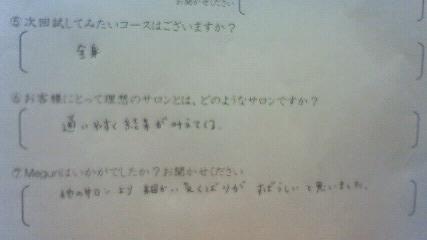 お聞かせください
⑤次回試してみたいコースはございますか？
全身
⑥お客様にとって理想のサロンとは、どのようなサロンですか？
通いやすく 結果が
⑦Meguriはいかがでしたか？お聞かせください
他のサロンより 細かい気くばりが すばらしいと思いました。